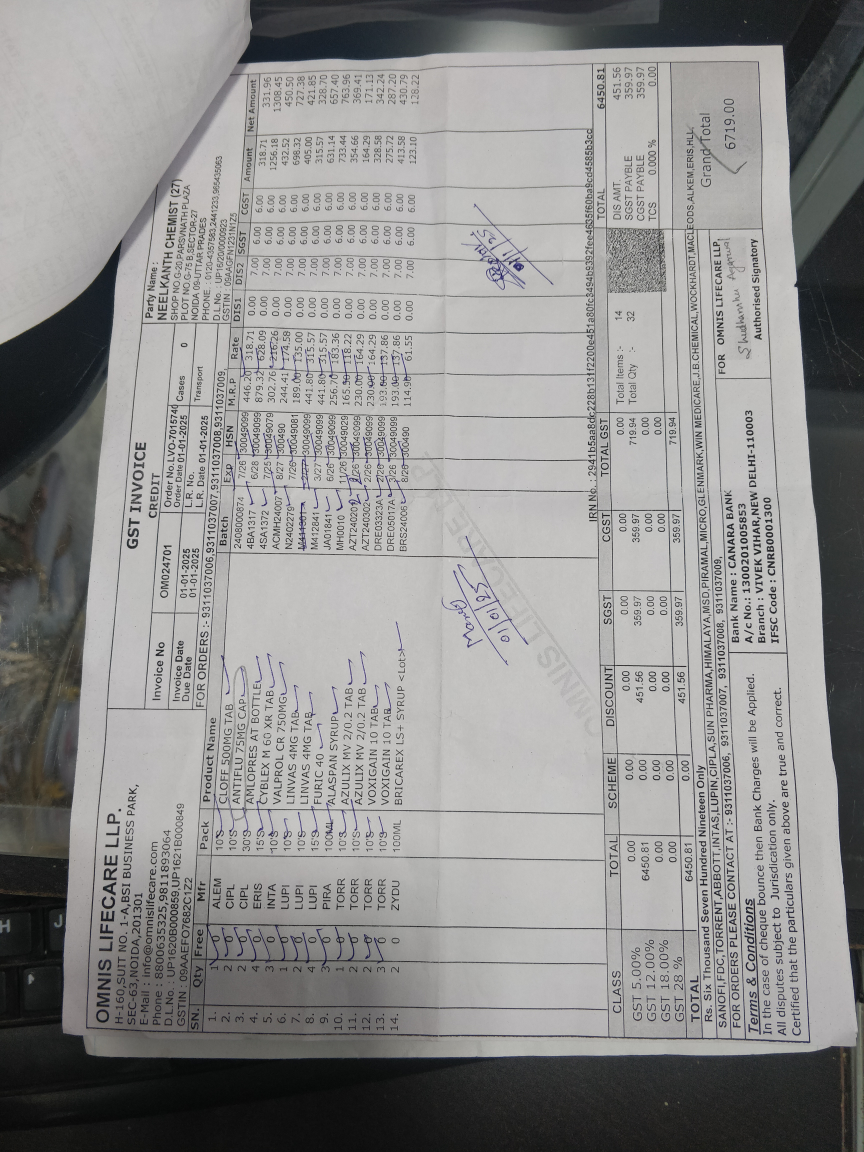 GST INVOICE
OMNIS LIFECARE LLP.
H-160,SUIT NO. 1-A,BSI BUSINESS PARK,
SEC-63,NOIDA,201301
E-Mail : info@omnislifecare.com
Phone : 8800635325,9811893064
D.L.No. : UP1620B000859,UP1621B000849
GSTIN : 09AAEFO7682C1Z2
CREDIT
Invoice No OM024701 Order No. LVO-7015740
Order Date 01-01-2025
Invoice Date 01-01-2025 L.R. No. Cases 0
Due Date 01-01-2025 L.R. Date 01-01-2025 Transport
FOR ORDERS :- 9311037006,9311037007,9311037008,9311037009,
Party Name :
NEELKANTH CHEMIST (27)
SHOP NO.G-20,PARSVNATH PLAZA
PLOT NO.G-75 B,SECTOR-27
NOIDA 09-UTTAR PRADES
PHONE : 0120-4357683,2441233,965435063
D.L.No. : UP1620/0000923
GSTIN : 09AAGFN1231N1Z5
SN. Qty Free Mfr Pack Product Name Batch Exp HSN M.R.P Rate DIS1 DIS2 SGST CGST Amount Net Amount
1. 1 0 ALEM 10'S CLOFF 500MG TAB 2408000874 7/26 30049099 446.20 318.71 0.00 7.00 6.00 6.00 318.71 331.96
2. 2 0 CIPL 10'S ANTIFLU 75MG CAP 4BA1317 6/28 30049099 879.32 628.09 0.00 7.00 6.00 6.00 1256.18 1308.45
3. 2 0 CIPL 30'S AMLOPRES AT BOTTLE 4SA1372 7/25 30049079 302.76 216.26 0.00 7.00 6.00 6.00 432.52 450.50
4. 4 0 ERIS 15'S CYBLEX M 60 XR TAB ACMH24007 8/27 300490 244.41 174.58 0.00 7.00 6.00 6.00 698.32 727.38
5. 3 0 INTA 10'S VALPROL CR 750MG N2402279 7/26 30049081 189.00 135.00 0.00 7.00 6.00 6.00 405.00 421.85
6. 1 0 LUPI 10'S LINVAS 4MG TAB 30049099 441.80 315.57 0.00 7.00 6.00 6.00 315.57 328.70
7. 2 0 LUPI 10'S LINVAS 4MG TAB M412841 3/27 30049099 441.80 315.57 0.00 7.00 6.00 6.00 631.14 657.40
8. 4 0 LUPI 15'S FURIC 40 JA01841 6/26 30049099 256.70 183.36 0.00 7.00 6.00 6.00 733.44 763.96
9. 3 0 PIRA 100ML ALASPAN SYRUP MH0010 11/26 30049029 165.50 118.22 0.00 7.00 6.00 6.00 354.66 369.41
10. 1 0 TORR 10'S AZULIX MV 2/0.2 TAB 30049099 230.00 164.29 0.00 7.00 6.00 6.00 164.29 171.13
11. 2 0 TORR 10'S AZULIX MV 2/0.2 TAB AZT240302 2/26 30049099 230.00 164.29 0.00 7.00 6.00 6.00 328.58 342.24
12. 2 0 TORR 10'S VOXIGAIN 10 TAB DRE03323A 2/26 30049099 193.00 137.86 0.00 7.00 6.00 6.00 275.72 287.20
13. 3 0 TORR 10'S VOXIGAIN 10 TAB DRE05017A 3/26 30049099 193.00 137.86 0.00 7.00 6.00 6.00 413.58 430.79
14. 2 0 ZYDU 100ML BRICAREX LS+ SYRUP <Lot> BRS24006 8/26 300490 114.90 61.55 0.00 7.00 6.00 6.00 123.10 128.22
01/01/25
OMNIS LIFECARE
CLASS TOTAL SCHEME DISCOUNT SGST CGST TOTAL GST
GST 5.00% 0.00 0.00 0.00 0.00 0.00 0.00
GST 12.00% 6450.81 0.00 451.56 359.97 359.97 719.94
GST 18.00% 0.00 0.00 0.00 0.00 0.00 0.00
GST 28 % 0.00 0.00 0.00 0.00 0.00 0.00
TOTAL 6450.81 0.00 451.56 359.97 359.97 719.94
Total Items :- 14
Total Qty :- 32
TOTAL 6450.81
DIS AMT. 451.56
SGST PAYBLE 359.97
CGST PAYBLE 359.97
TCS 0.000 % 0.00
Grand Total
6719.00
Rs. Six Thousand Seven Hundred Nineteen Only
SANOFI,FDC,TORRENT,ABBOTT,INTAS,LUPIN,CIPLA,SUN PHARMA,HIMALAYA,MSD,PIRAMAL,MICRO,GLENMARK,WIN MEDICARE,J.B.CHEMICAL,WOCKHARDT,MACLEODS,ALKEM,ERIS,HLL,
FOR ORDERS PLEASE CONTACT AT :- 9311037006, 9311037007, 9311037008, 9311037009,
Terms & Conditions
In the case of cheque bounce then Bank Charges will be Applied.
All disputes subject to Jurisdication only.
Certified that the particulars given above are true and correct.
Bank Name : CANARA BANK
A/c No.: 1300201005853
Branch : VIVEK VIHAR,NEW DELHI-110003
IFSC Code : CNRB0001300
FOR OMNIS LIFECARE LLP.
Shudhanshu Agarwal
Authorised Signatory